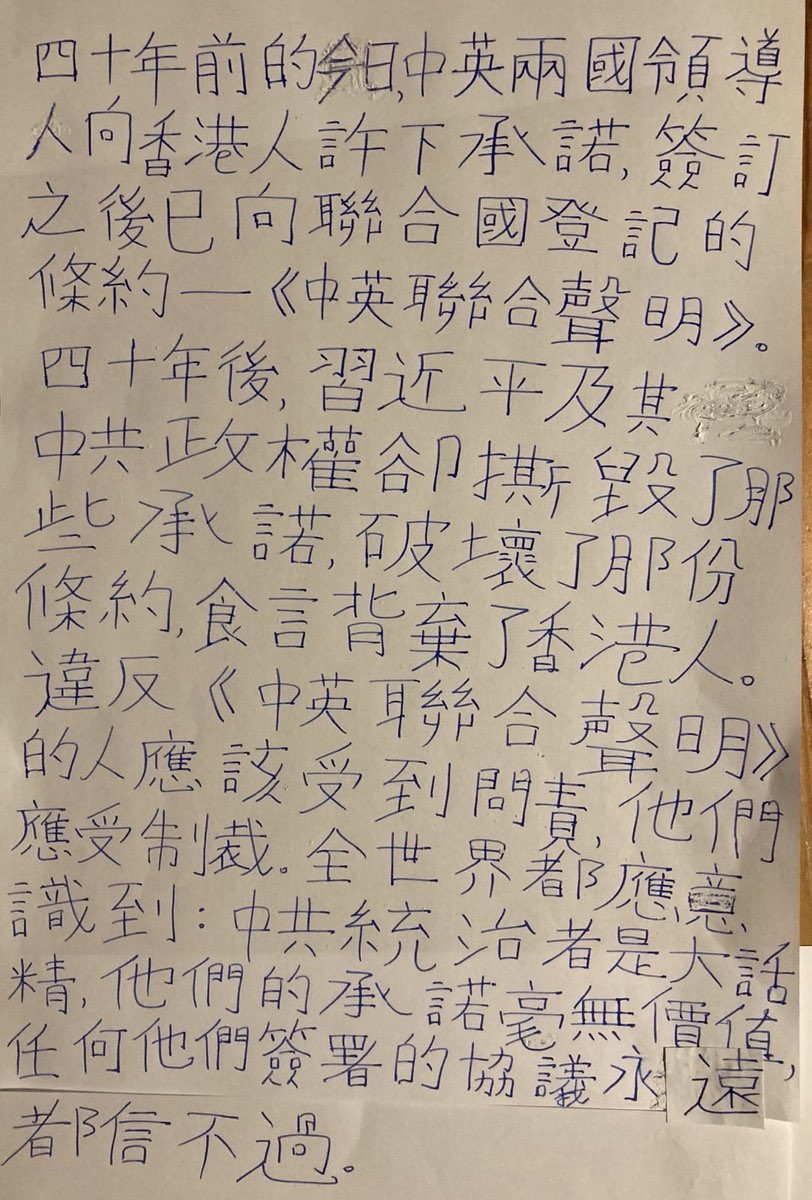 四十年前的今日,中英兩國領導
人向香港人許下承諾,簽訂
之後已向聯合國登記的
條約—《中英聯合聲明》。
四十年後,習近平及其
中共政權卻撕毀了那
些承諾,破壞了那份
條約,食言背棄了香港人。
違反《中英聯合聲明》
的人應該受到問責,他們
應受制裁。全世界都應意
識到:中共統治者是大話
精,他們的承諾毫無價值,
任何他們簽署的協議永遠
都信不過。